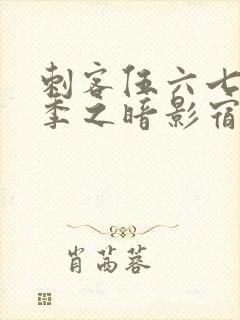 刺客伍六七
季之暗影宿
肖茜蓉